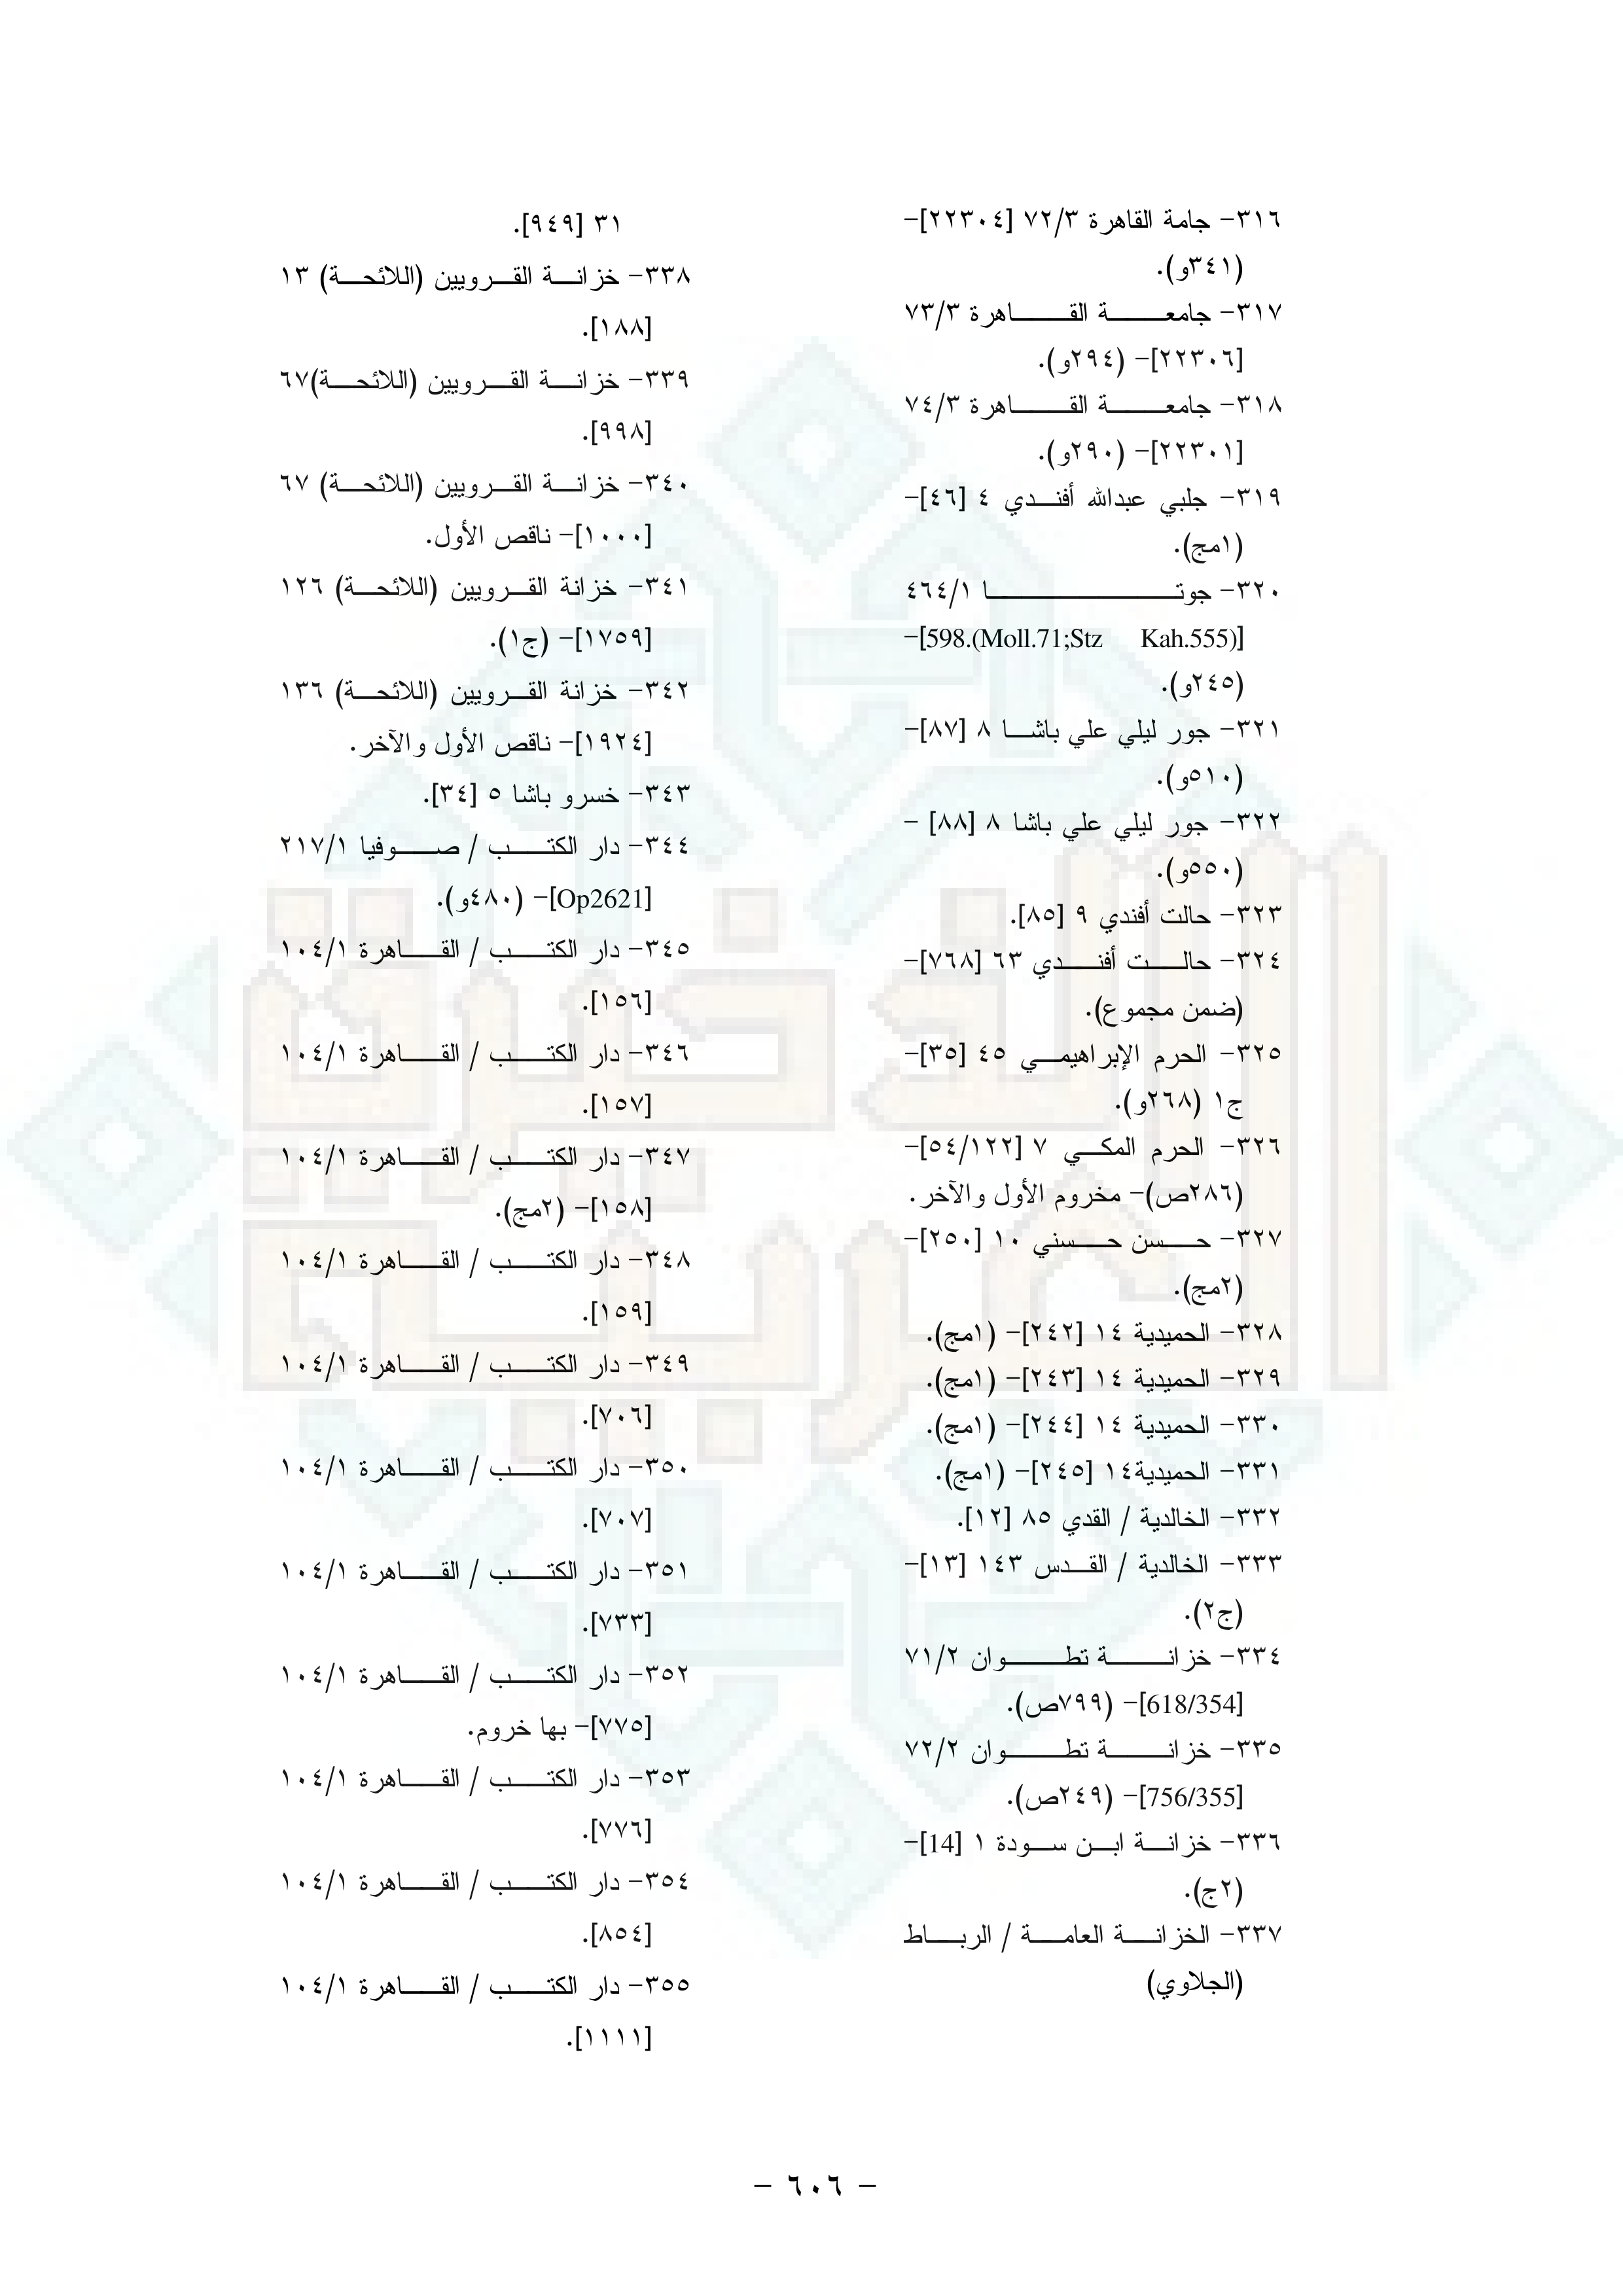 ٣١٦- جامة القاهرة ٧٢/٣ [٢٢٣٠٤]-
(٣٤١و).
٣١٧- جامعة القاهرة ٧٣/٣
[٢٢٣٠٦]- (٢٩٤و).
٣١٨- جامعة القاهرة ٧٤/٣
[٢٢٣٠١]- (٢٩٠و).
٣١٩- جلبي عبدالله أفندي ٤ [٤٦]-
(١مج).
٣٢٠- جوتا ٤٦٤/١
[598.(Moll.71;Stz Kah.555)]-
(٢٤٥و).
٣٢١- جور ليلي علي باشا ٨ [٨٧]-
(٥١٠و).
٣٢٢- جور ليلي علي باشا ٨ [٨٨] -
(٥٥٠و).
٣٢٣- حالت أفندي ٩ [٨٥].
٣٢٤- حالت أفندي ٦٣ [٧٦٨]-
(ضمن مجموع).
٣٢٥- الحرم الإبراهيمي ٤٥ [٣٥]-
ج١ (٢٦٨و).
٣٢٦- الحرم المكي ٧ [٥٤/١٢٢]-
(٢٨٦ص)- مخروم الأول والآخر.
٣٢٧- حسن حسني ١٠ [٢٥٠]-
(٢مج).
٣٢٨- الحميدية ١٤ [٢٤٢]- (١مج).
٣٢٩- الحميدية ١٤ [٢٤٣]- (١مج).
٣٣٠- الحميدية ١٤ [٢٤٤]- (١مج).
٣٣١- الحميدية١٤ [٢٤٥]- (١مج).
٣٣٢- الخالدية / القدي ٨٥ [١٢].
٣٣٣- الخالدية / القدس ١٤٣ [١٣]-
(ج٢).
٣٣٤- خزانة تطوان ٧١/٢
[618/354]- (٧٩٩ص).
٣٣٥- خزانة تطوان ٧٢/٢
[756/355]- (٢٤٩ص).
٣٣٦- خزانة ابن سودة ١ [14]-
(٢ج).
٣٣٧- الخزانة العامة / الرباط
(الجلاوي)
٣١ [٩٤٩].
٣٣٨- خزانة القرويين (اللائحة) ١٣
[١٨٨].
٣٣٩- خزانة القرويين (اللائحة)٦٧
[٩٩٨].
٣٤٠- خزانة القرويين (اللائحة) ٦٧
[١٠٠٠]- ناقص الأول.
٣٤١- خزانة القرويين (اللائحة) ١٢٦
[١٧٥٩]- (ج١).
٣٤٢- خزانة القرويين (اللائحة) ١٣٦
[١٩٢٤]- ناقص الأول والآخر.
٣٤٣- خسرو باشا ٥ [٣٤].
٣٤٤- دار الكتب / صوفيا ٢١٧/١
[Op2621]- (٤٨٠و).
٣٤٥- دار الكتب / القاهرة ١٠٤/١
[١٥٦].
٣٤٦- دار الكتب / القاهرة ١٠٤/١
[١٥٧].
٣٤٧- دار الكتب / القاهرة ١٠٤/١
[١٥٨]- (٢مج).
٣٤٨- دار الكتب / القاهرة ١٠٤/١
[١٥٩].
٣٤٩- دار الكتب / القاهرة ١٠٤/١
[٧٠٦].
٣٥٠- دار الكتب / القاهرة ١٠٤/١
[٧٠٧].
٣٥١- دار الكتب / القاهرة ١٠٤/١
[٧٣٣].
٣٥٢- دار الكتب / القاهرة ١٠٤/١
[٧٧٥]- بها خروم.
٣٥٣- دار الكتب / القاهرة ١٠٤/١
[٧٧٦].
٣٥٤- دار الكتب / القاهرة ١٠٤/١
[٨٥٤].
٣٥٥- دار الكتب / القاهرة ١٠٤/١
[١١١١].
الذخيرة
العربية
- ٦٠٦ -